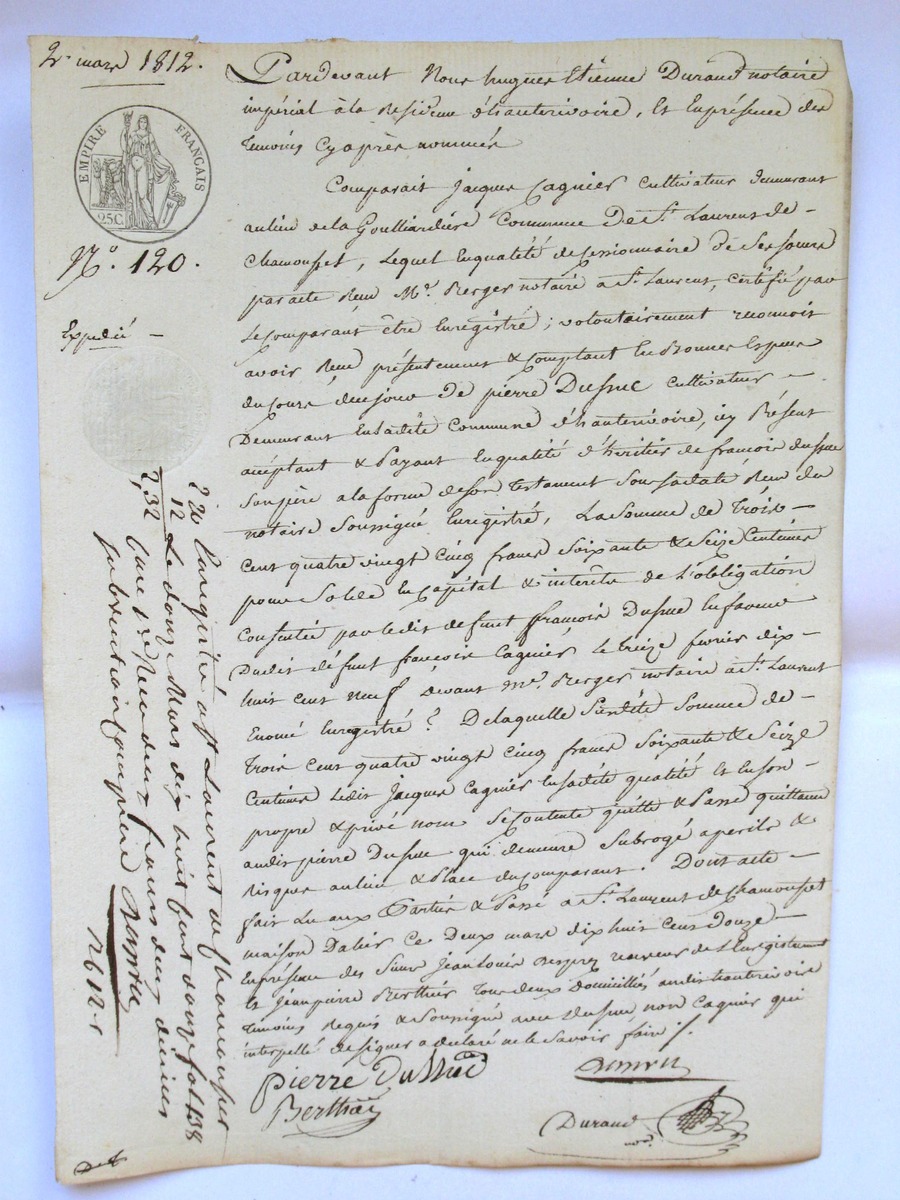 2. mars 1812.
EMPIRE FRANÇAIS
25C
N.° 120.
Expedié
Pardevant Nous hugues Etienne Durand notaire
impérial à la Residence d'hauterivoire, Et Enprésence des
temoins Cyaprès nommés
Comparait Jacques Cagnier cultivateur demeurant
aulieu de la Goulliardière Commune De St. Laurent de-
Chamousset, Lequel Enqualité de Cessionnaire De Ses soeurs
paracte Reçu Me. Berger notaire a St. Laurent, certifié par
Lecomparant être Enregistré; volontairement reconnoit
avoir Reçu présentement & Comptant En Bonnes Especes
du jours De pierre Dussuc cultivateur -
Demeurant Ensadite Commune d'hauterivoire, icy Présent
acceptant & Payant Enqualité d'héritier de francois dussuc
Sonpère a la forme deson testament Soussadate Reçu du
notaire Soussigné Enregistré, La Somme de Trois-
Cent quatre vingt Cinq francs Soixante & Seize Centimes
pour Solde En Capital & interêts de L'obligation
Consentie par ledit defunt françois Dussuc En faveur
Dudit défunt françois Cagnier Le treize fevrier dix-
huit cent neuf Devant Me. Berger notaire a St. Laurent
Enregistré? Delaquelle Susdite Somme de-
Trois Cent quatre vingt Cinq francs Soixante & Seize
Centimes Ledit Jacques Cagnier Ensadite qualité Et Enson-
propre & privé nom Secontente quitte & Passe quittance
audit pierre Dussuc qui demeure Subrogé aperils &
risques aulieu & Place ducomparant. Dont acte -
fait Lu aux Parties & Passé a St. Laurent de Chamousset
maison Dalier Ce Deux mars dix huit cent Douze -
Enprésence des Sieurs Jeanlouis receveur de L'Enregistrement
Et Jeanpierre Berthier Tous deux Domiciliés audit hauterivoire
temoins Requis & Soussignés avec Dussuc, non Cagnier qui
interpellé de signer a declaré ne le Savoir faire /.
pierre Dussuc
Berthier
Durand
not.
2 20
12
2,32
Enregistré a St Laurent de chamousset
Le douze Mars dix huit cent douze fol 138
Case 1re Reçu deux francs deux décimes